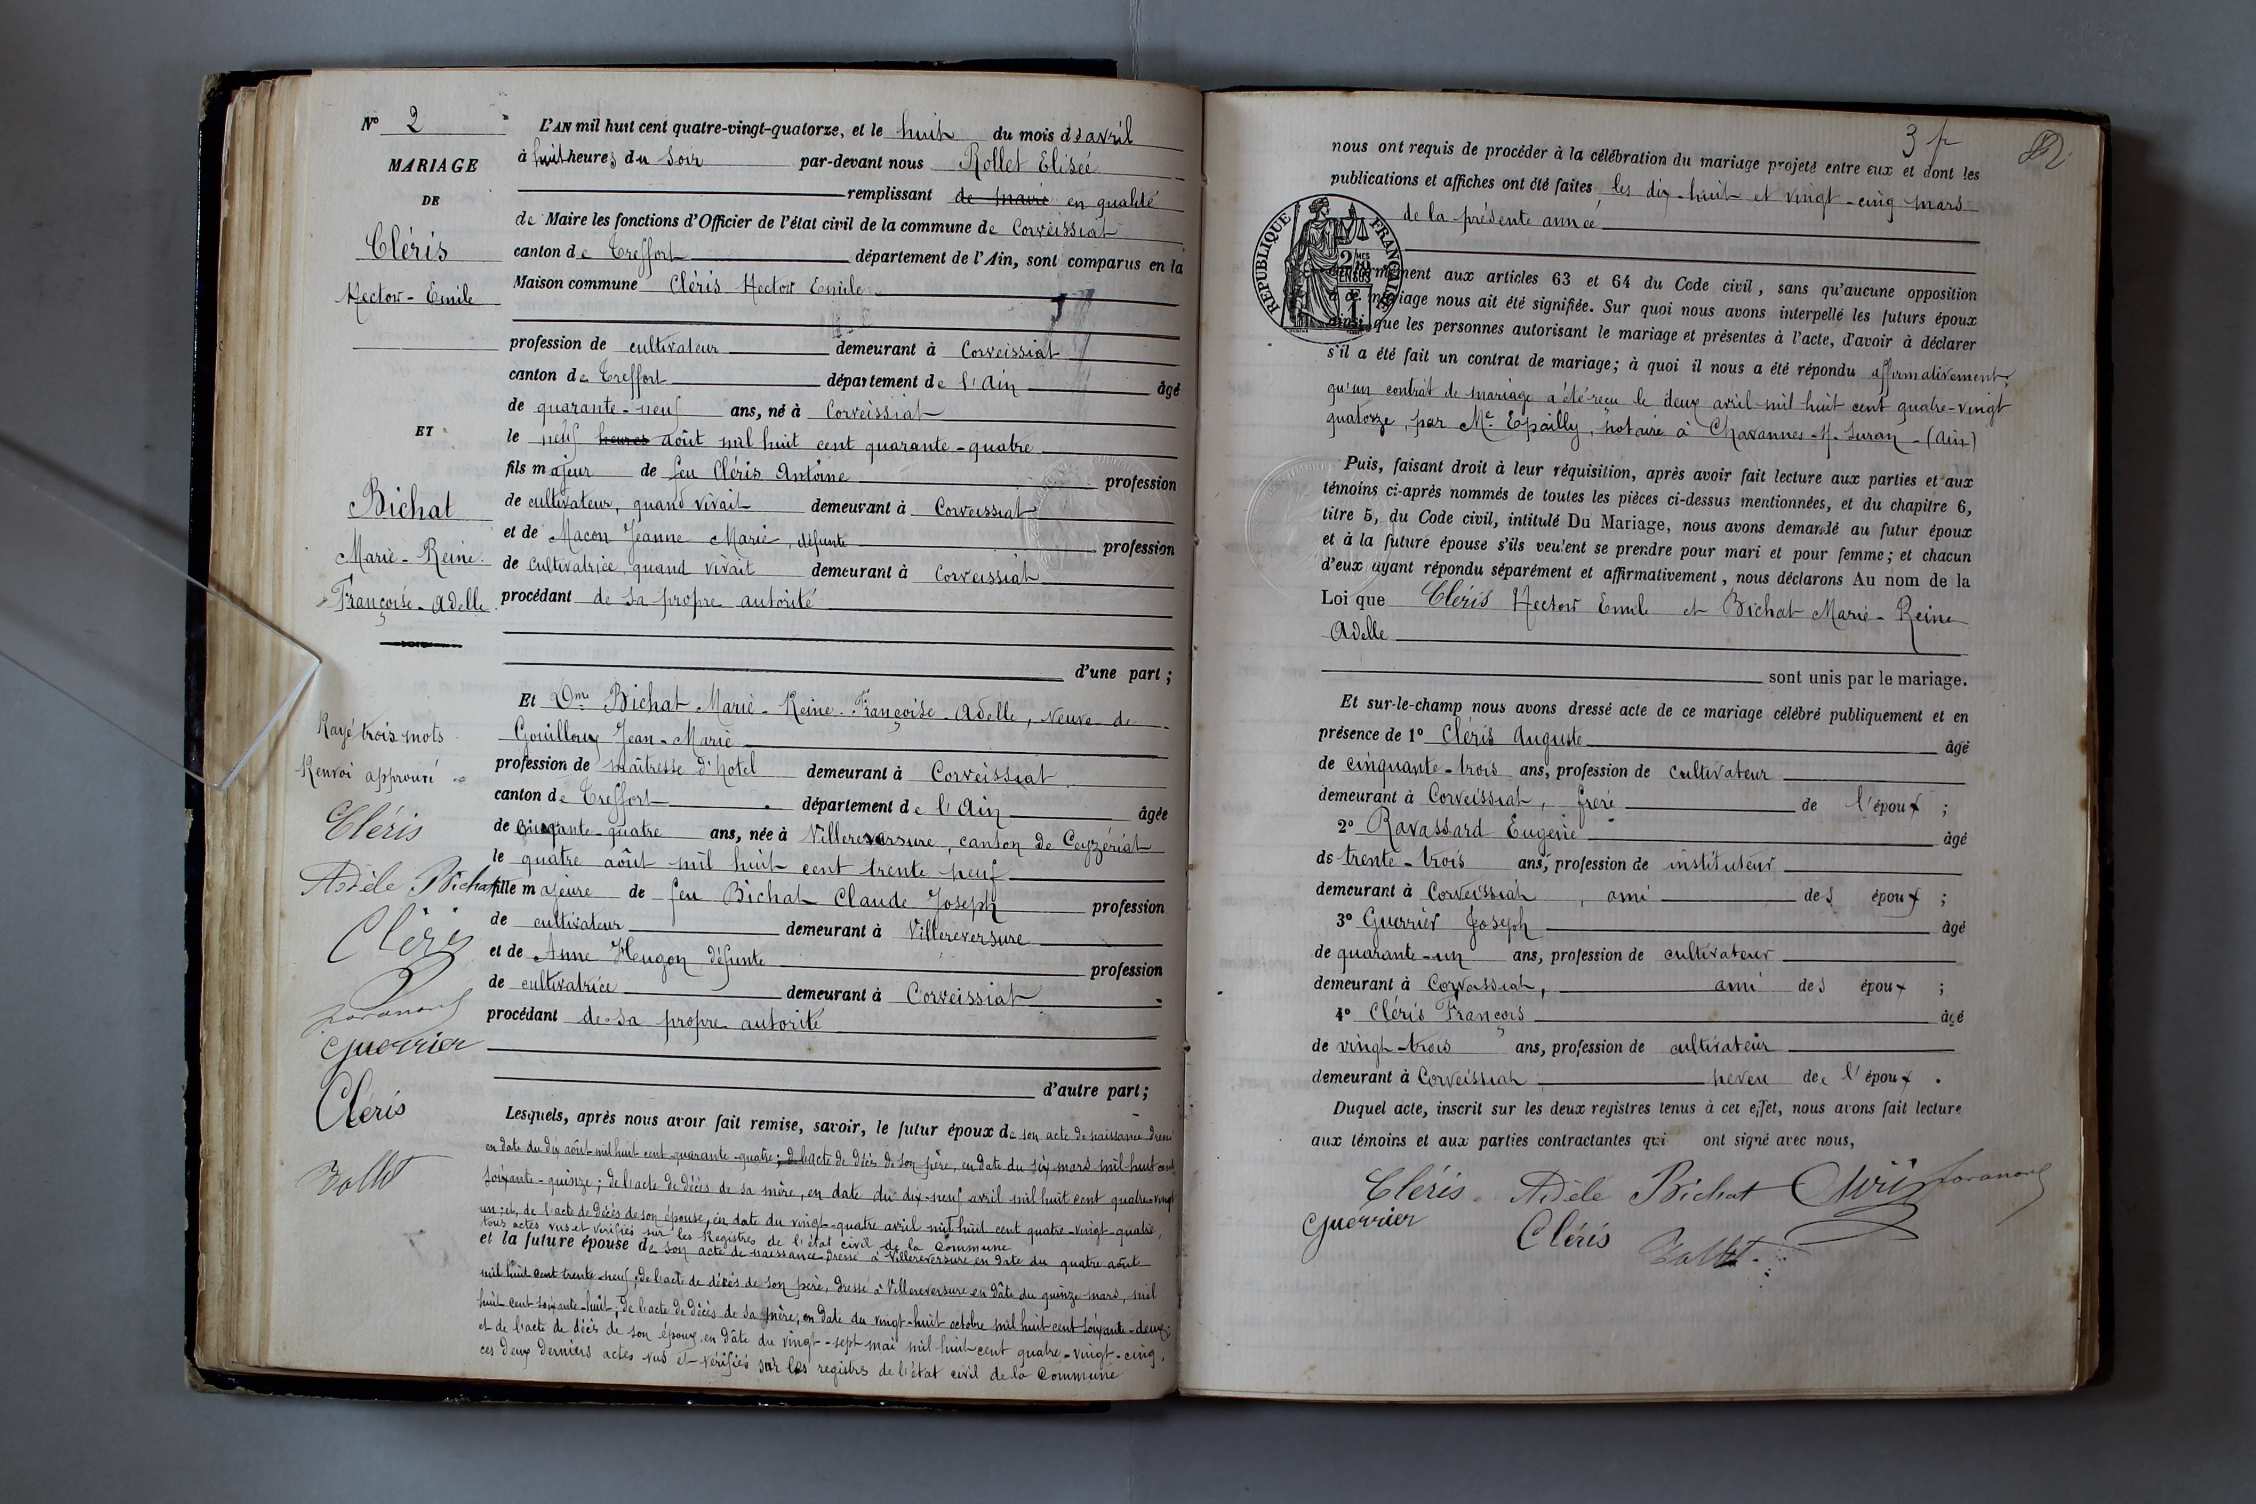 N° 2
MARIAGE
DE
Cléris
Hector - Emile
ET
Bichat
Marie - Reine
Françoise - Adelle
Rayé trois mots
Renvoi approuvé
Cléris
Adèle Bichat
Cléris
Guerrier
Cléris
Rollet
L'AN mil huit cent quatre-vingt-quatorze, et le huit du mois de avril
à huit heures du soir par-devant nous Rollet Elisée
remplissant de maire en qualité
de Maire les fonctions d'Officier de l'état civil de la commune de Corveissiat
canton de Treffort département de l'Ain, sont comparus en la
Maison commune Cléris Hector Emile
profession de cultivateur demeurant à Corveissiat
canton de Treffort département de l'Ain âgé
de quarante-neuf ans, né à Corveissiat
le neuf heures août mil huit cent quarante-quatre
fils majeur de feu Cléris Antoine profession
de cultivateur, quand vivait demeurant à Corveissiat
et de Macon Jeanne Marie, défunte profession
de cultivatrice, quand vivait demeurant à Corveissiat
procédant de sa propre autorité
d'une part ;
Et Dme Bichat Marie - Reine - Françoise - Adelle, Veuve de
Gouilloux Jean-Marie
profession de maîtresse d'hotel demeurant à Corveissiat
canton de Treffort département de l'Ain âgée
de cinquante-quatre ans, née à Villereversure, canton de Ceyzériat
le quatre août mil huit cent trente neuf
fille majeure de feu Bichat Claude Joseph profession
de cultivateur demeurant à Villereversure
et de Anne Hugon défunte profession
de cultivatrice demeurant à Corveissiat
procédant de sa propre autorité
d'autre part ;
Lesquels, après nous avoir fait remise, savoir, le futur époux de son acte de naissance dressé
en date du dix août mil huit cent quarante-quatre ; de l'acte de décès de son père, en date du six mars mil huit cent
soixante-quinze ; de l'acte de décès de sa mère, en date du dix-neuf avril mil huit cent quatre-vingt
un ; et, de l'acte de décès de son épouse, en date du vingt-quatre avril mil huit cent quatre-vingt-quatre,
tous actes vus et vérifiés sur les Registres de l'état civil de la Commune
et la future épouse de son acte de naissance dressé à Villereversure en date du quatre août
mil huit cent trente-neuf ; de l'acte de décès de son père, dressé à Villereversure en date du quinze mars, mil
huit cent soixante-huit ; de l'acte de décès de sa mère, en date du vingt-huit octobre mil huit cent soixante-deux ;
et de l'acte de décès de son époux en date du vingt-sept mai mil huit cent quatre-vingt-cinq,
ces deux derniers actes vus et vérifiés sur les registres de l'état civil de la Commune
3 f
nous ont requis de procéder à la célébration du mariage projeté entre eux et dont les
publications et affiches ont été faites les dix-huit et vingt-cinq mars
de la présente année
RÉPUBLIQUE FRANÇAISE
2/10 EN SUS
conformément aux articles 63 et 64 du Code civil, sans qu'aucune opposition
à ce mariage nous ait été signifiée. Sur quoi nous avons interpellé les futurs époux
ainsi que les personnes autorisant le mariage et présentes à l'acte, d'avoir à déclarer
s'il a été fait un contrat de mariage ; à quoi il nous a été répondu affirmativement,
qu'un contrat de mariage a été reçu le deux avril mil huit cent quatre-vingt
quatorze, par Me Epailly, notaire à Chavannes-s/-Suran - (Ain)
Puis, faisant droit à leur réquisition, après avoir fait lecture aux parties et aux
témoins ci-après nommés de toutes les pièces ci-dessus mentionnées, et du chapitre 6,
titre 5, du Code civil, intitulé Du Mariage, nous avons demandé au futur époux
et à la future épouse s'ils veulent se prendre pour mari et pour femme ; et chacun
d'eux ayant répondu séparément et affirmativement, nous déclarons Au nom de la
Loi que Cléris Hector Emile et Bichat Marie - Reine
Adelle
sont unis par le mariage.
Et sur-le-champ nous avons dressé acte de ce mariage célébré publiquement et en
présence de 1° Cléris Auguste âgé
de cinquante-trois ans, profession de cultivateur
demeurant à Corveissiat, frère de l'époux ;
2° Ravassard Eugène âgé
de trente-trois ans, profession de instituteur
demeurant à Corveissiat, ami des époux ;
3° Guerrier Joseph âgé
de quarante-un ans, profession de cultivateur
demeurant à Corveissiat, ami des époux ;
4° Cléris François âgé
de vingt-trois ans, profession de cultivateur
demeurant à Corveissiat neveu de l'époux .
Duquel acte, inscrit sur les deux registres tenus à cet effet, nous avons fait lecture
aux témoins et aux parties contractantes qui ont signé avec nous,
Cléris Adèle Bichat Cléris
Guerrier Cléris Rollet